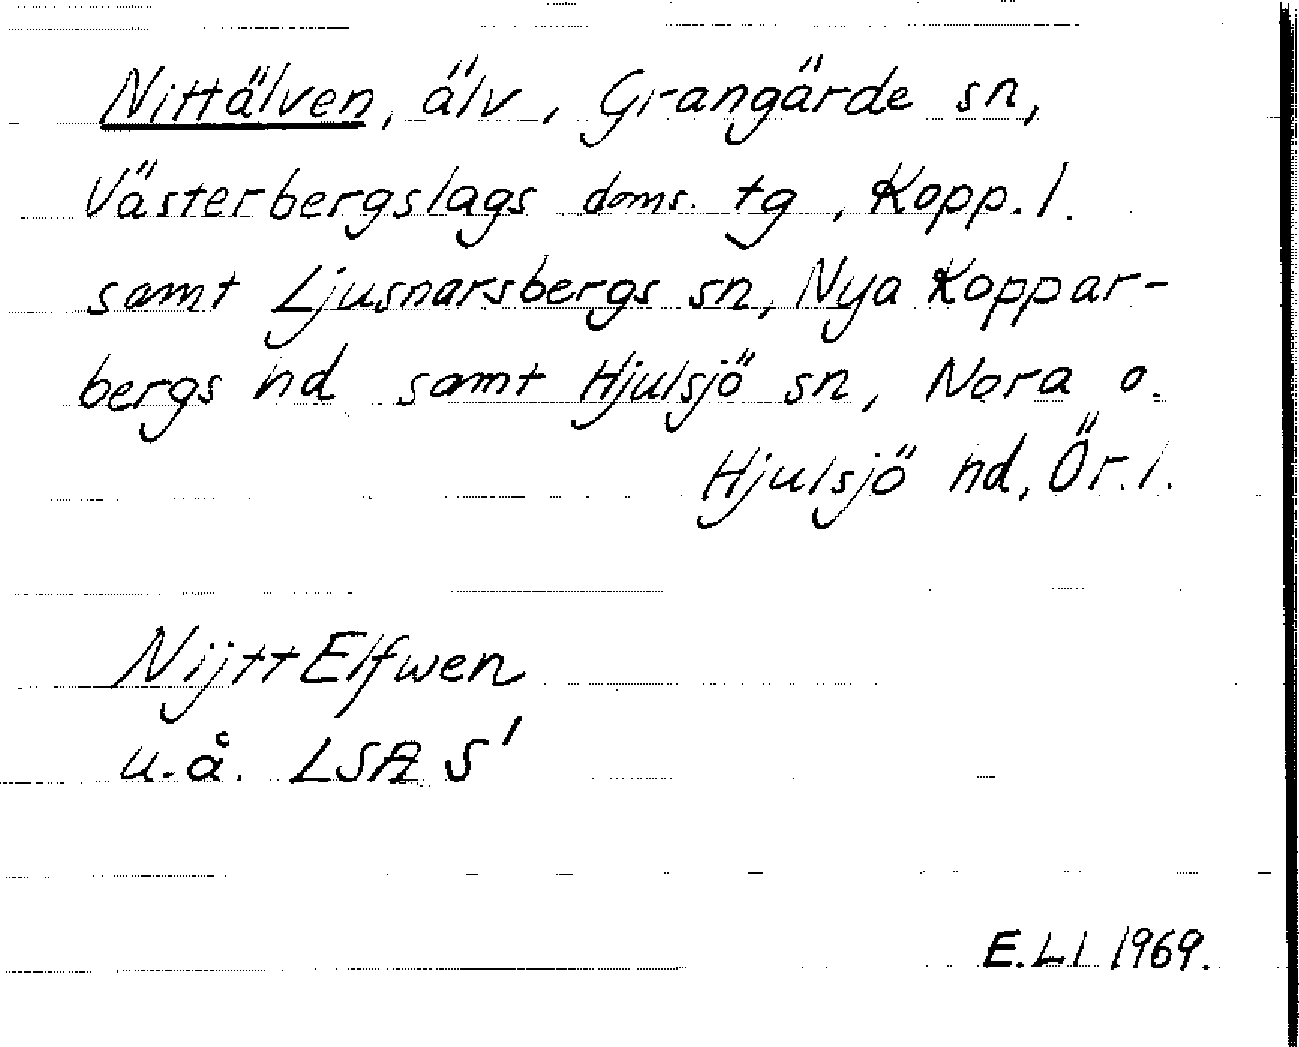 Nittälven, älv, Grangärde sn,
Västerbergslags doms. tg, Kopp. l.
samt Ljusnarsbergs sn, Nya Koppar-
bergs hd samt Hjulsjö sn, Nora o.
Hjulsjö hd, Ör. l.
Nijtt Elfwen
u.å. LSA S'
E. Ll 1969.